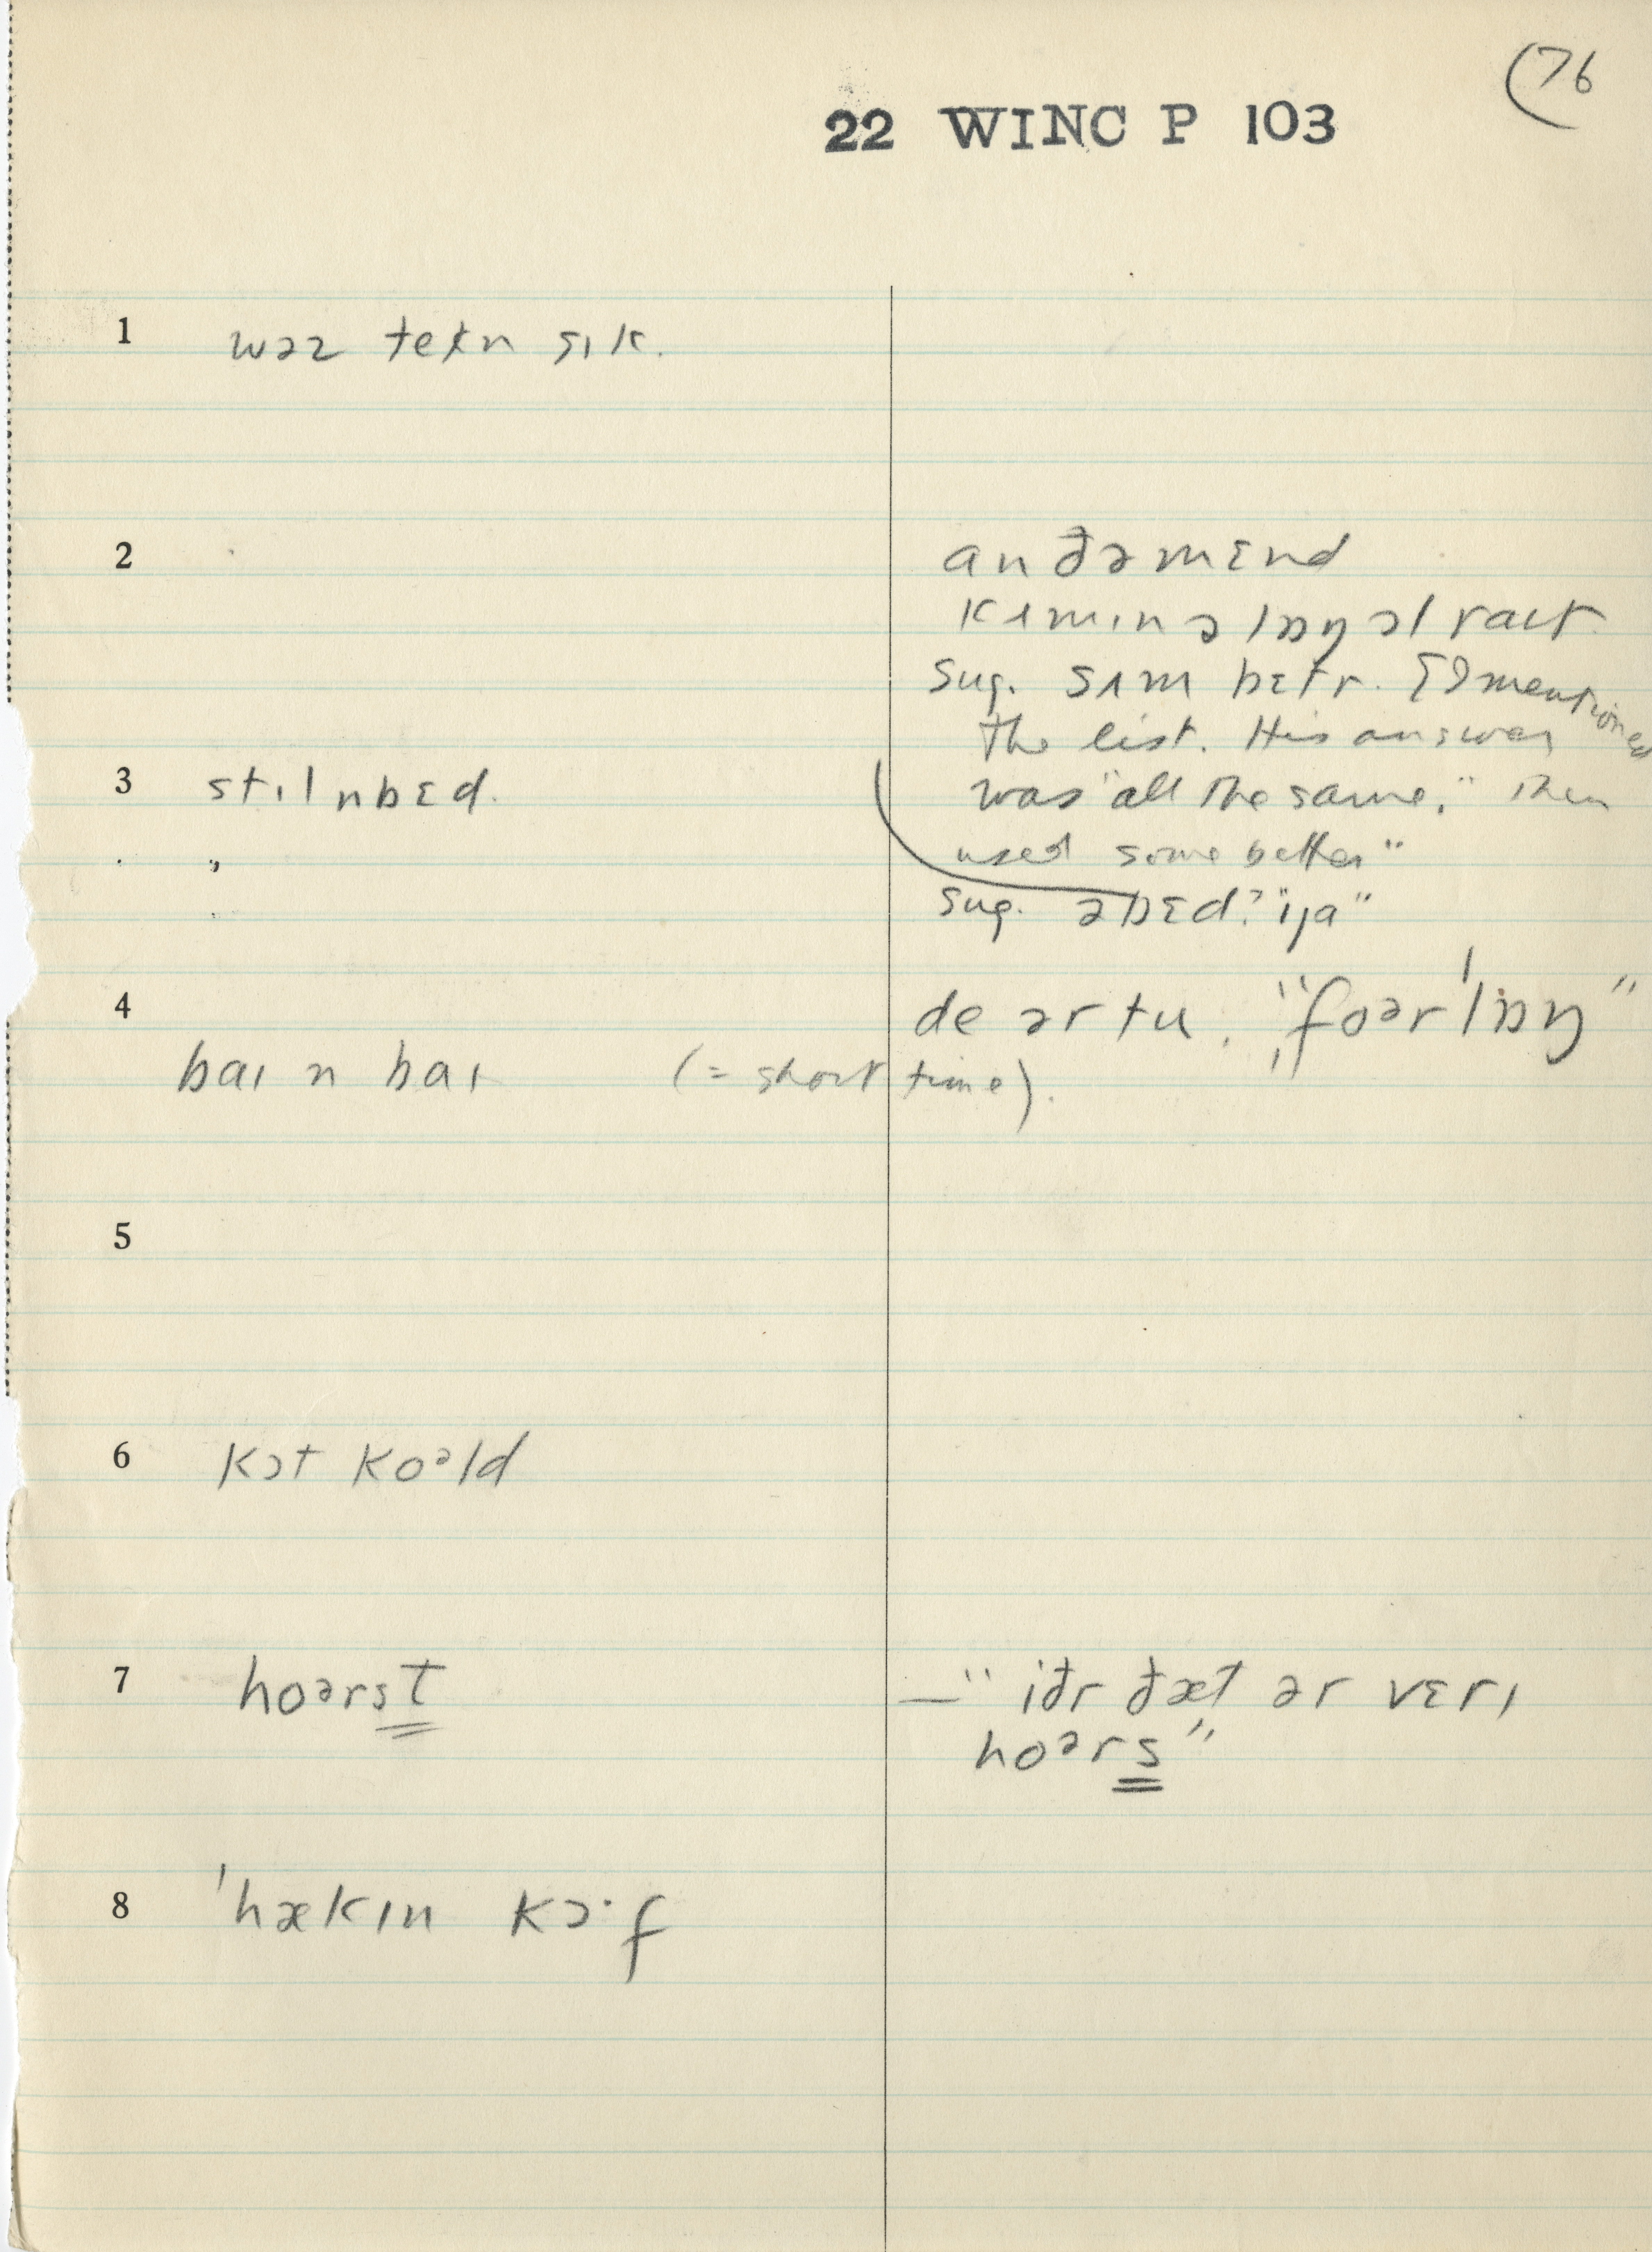 (76
22 WINC P 103
1 wəz tekn sɪk.
2 an ðə mɛnd
kʌmɪn əlɒŋ əl raɪt
sug. sʌm bɛtr. [I mentioned
the list. His answer
was "all the same." Then
used some better"
3 stɪl n bɛd.
"
sug. əbɛd? "ɪja"
4 de ər tu. "foər ˈlɒŋ"
baɪ n baɪ (= short time).
5
6 kɔt koəld
7 hoərst — "iðr ðæt ər vɛrɪ
hoərs"
8 ˈhækɪn kɔ·f